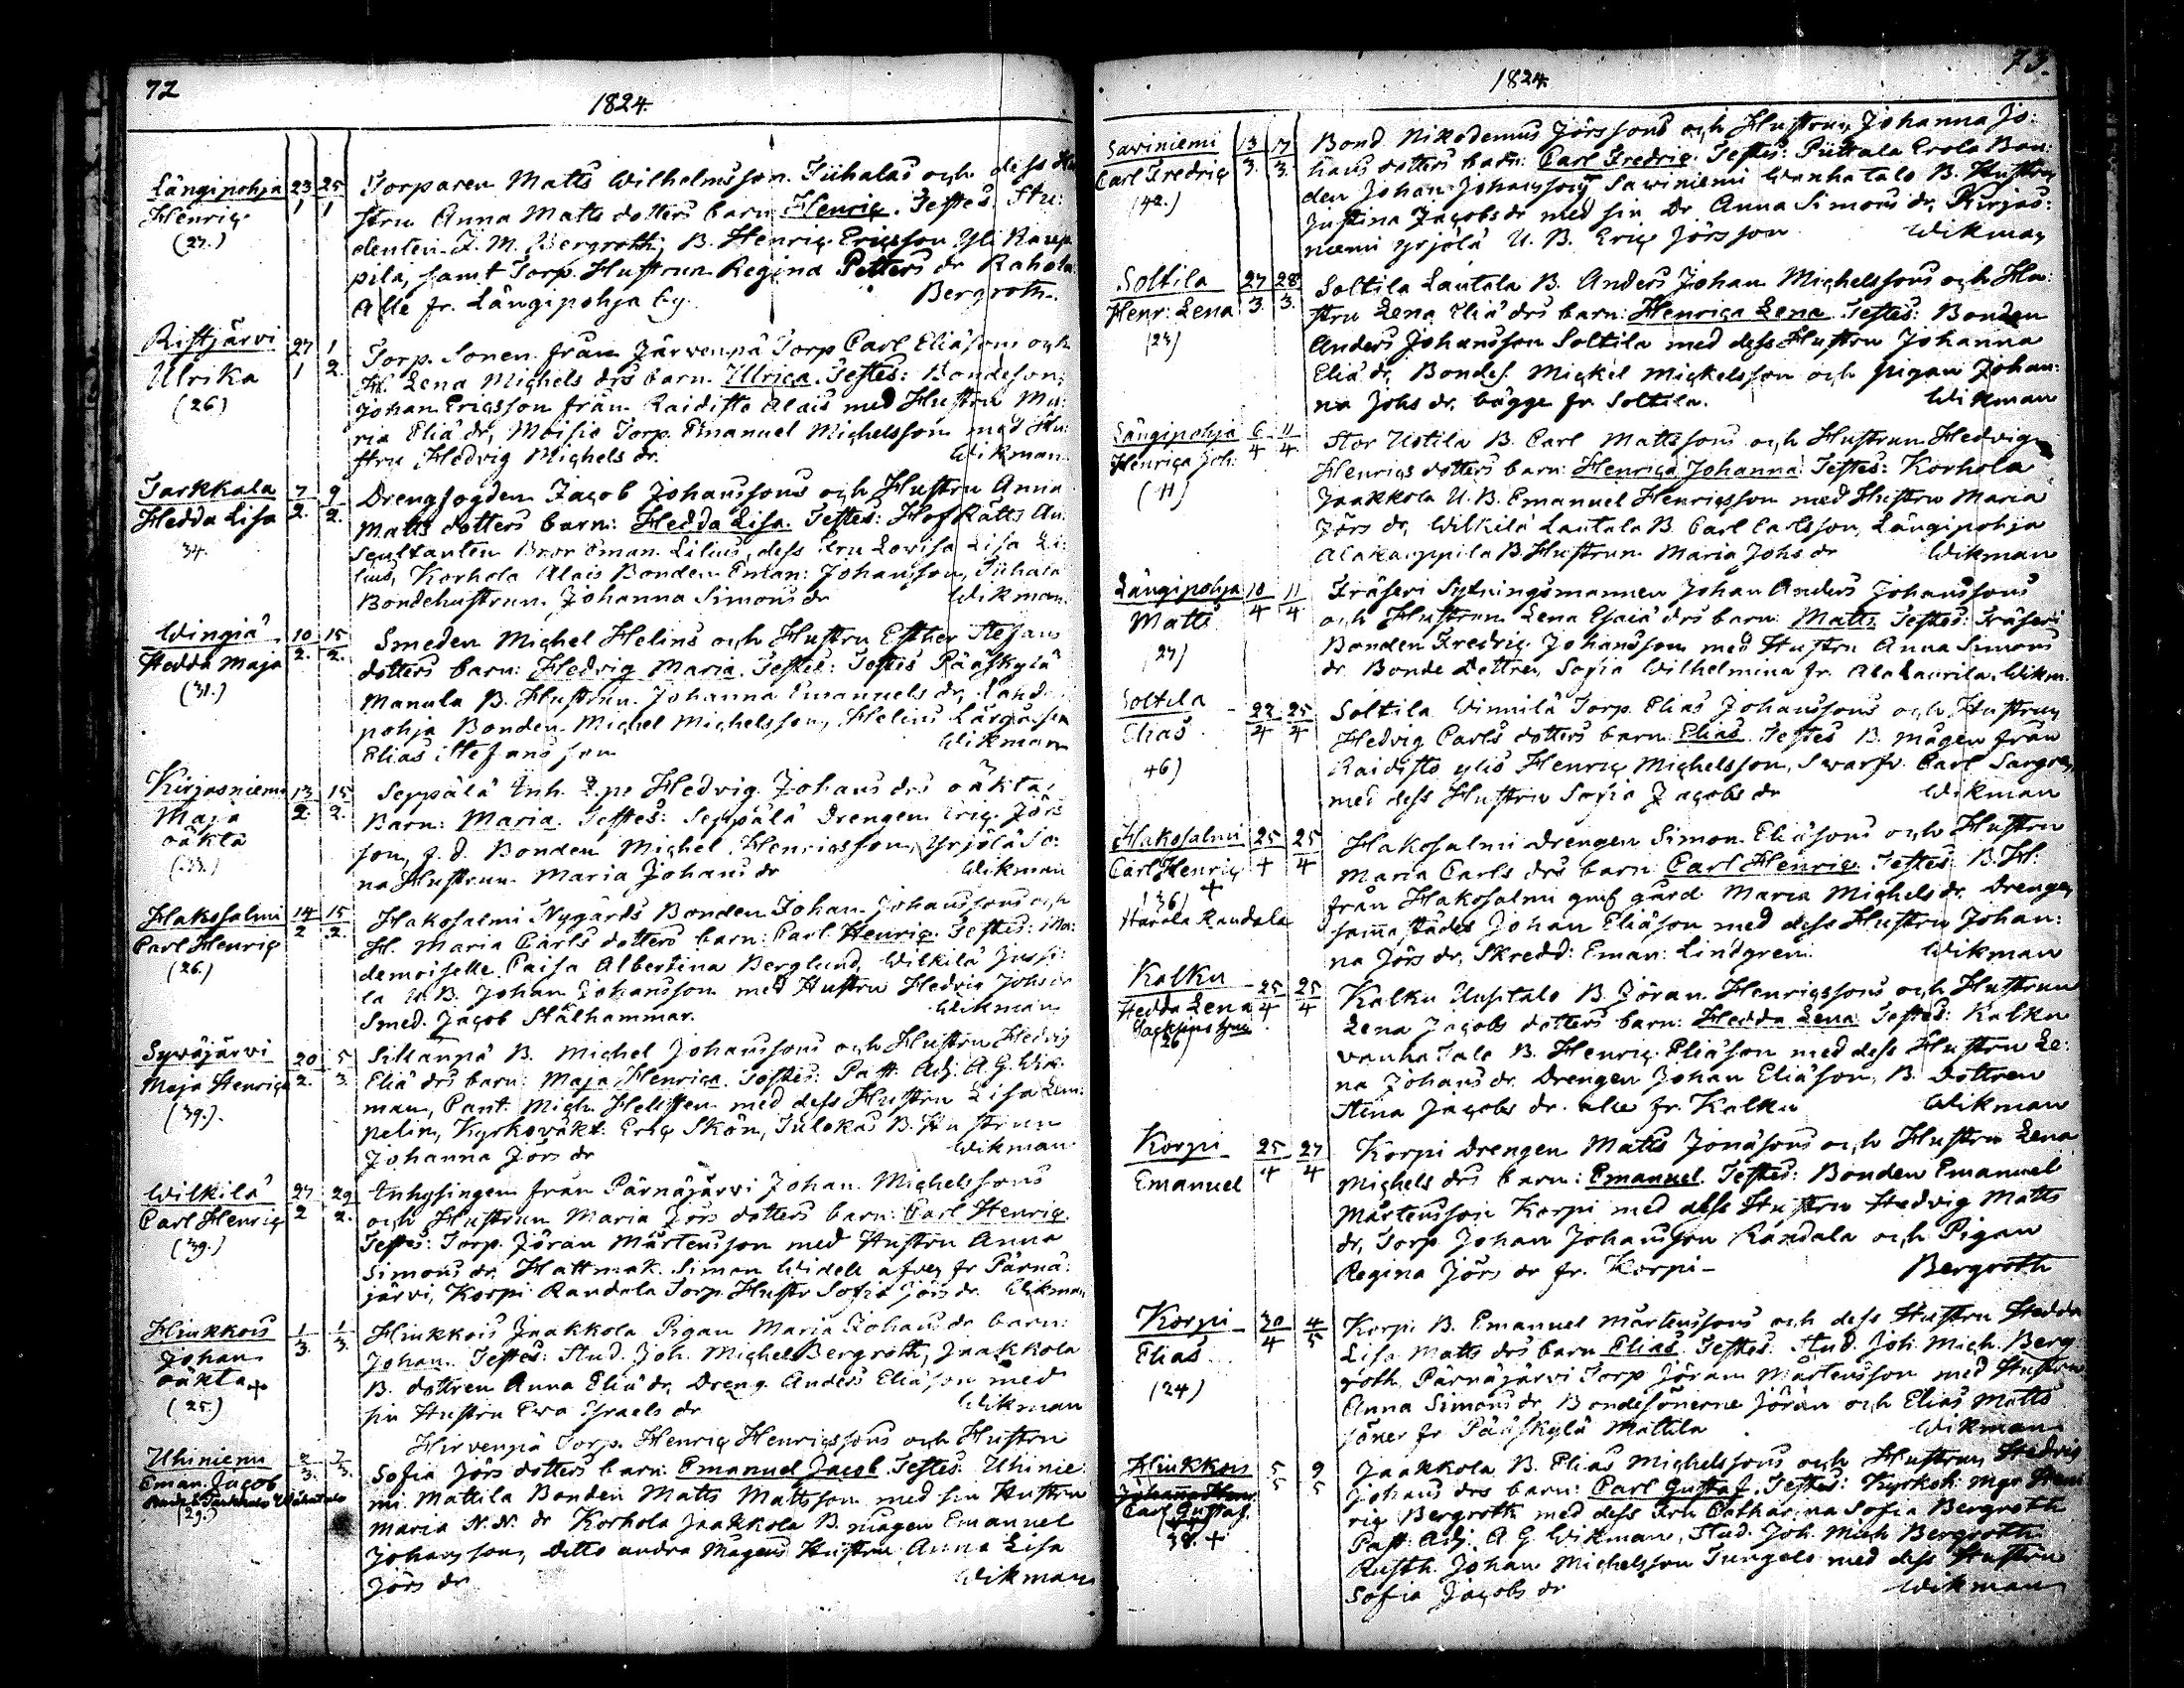 72
1824.
Längipohja 23/1 25/1 Torparen Matts Wilhelmsson Juhalas och dess Hu
Henric stru Anna Matts dotters barn Henric. Testes: Stu:
(27.) denten J. M. Bergroth, B. Henric Ericsson Yli Kaup
pila, samt Torp. Hustrun Regina Petters dr Rahola
Alle fr. Längipohja by. Bergroth.
Ristjärvi 27/1 1/2. Torp. Sonen från Järvenpä Torp Carl Eliäsons och
Ulrika H. Lena Michels drs barn. Ulrica. Testes: Bondeson:
(26) Johan Ericsson från Raidisto Alais med Hustru Ma:
ria Eliä dr, Moisio Torp. Emanuel Michelsson med Hu:
stru Hedvig Michels dr. Wikman.
Tarkkala 7/2. 9/2. Drengfogden Jacob Johanssons och Hustru Anna
Hedda Lisa Matts dotters barn: Hedda Lisa. Testes: Hof Rätts Au:
34. scultanten Eman. Lilius, dess Fru Lovisa Lisa Li:
lius, Korhola Alais Bonden Eman: Johansson, Juhala
Bondehustrun Johanna Simons dr Wikman.
Wingiä 10/2. 15/2. Smeden Michel Helins och Hustru Esther Stefans
Hedda Maja dotters barn: Hedvig Maria. Testes: Testes Pääskylä
(31.) Manula B. Hustrun Johanna Emanuels dr, Länd.
pohja Bonden Michel Michelsson, Helins
Elias Stefansson Wikman
Kirjasniemi 13/2. 15/2. Seppälä Inh. Hedvig Johans drs oäkta
Maja Barn: Maria. Testes: Seppälä Drengen Eric Jörs
oäkta son, f. d. Bonden Michel Henricsson, Yrjölä So:
(33.) na Hustrun Maria Johans dr Wikman
Hakosalmi 14/2 15/2. Hakosalmi Nygårds Bonden Johan Johanssons och
Carl Henric H. Maria Carls dotters barn: Carl Henric. Testes: Ma:
(26.) demoiselle Caisa Albertina Berglund, Wilkilä Jussi:
la U. B. Johan Johansson med Hustru Hedvig Johs dr
Smed. Jacob Stålhammar. Wikman
Sywäjärvi 20/2. 5/3. Sillanpä B. Michel Johanssons och Hustru Hedvig
Maja Henrica Eliä drs barn: Maja Henrica. Testes: Past. Adj. A. G. Wik:
(39.) man, Cant. Mich. Hellsten med dess Hustru Lisa Lem:
pelin, Kyrkovakt. Eric Skön, Tulokas B. Hustrun
Johanna Jörs dr Wikman
Wilkilä 27/2 29/2. Inhysingen från Pärnäjärvi Johan Michelssons
Carl Henric och Hustrun Maria Jörs dotters barn: Carl Henric.
(39.) Testes: Torp. Jöran Mårtensson med Hustru Anna
Simons dr. Hattmak. Simon Widell afven fr Pärnä:
järvi, Korpi Randala Torp. Hustr Sofia Jörs dr. Wikman
Hinkkois 1/3. 1/3. Hinkkois Jaakkola Pigan Maria Johans dr barn:
Johan Johan. Testes: Stud. Joh. Michel Bergroth, Jaakkola
oäkta + B. dottren Anna Eliä dr, Dreng. Anders Eliäson med
(25.) sin Hustru Ewa Israels dr Wikman
Uhiniemi 2/3. 7/3. Hirvenpä Torp. Henric Henricssons och Hustru
Eman. Jacob Sofia Jörs dotters barn: Emanuel Jacob. Testes: Uhinie
(29.) mi Mattila Bonden Matts Mattsson med sin Hustru
Maria N. N. dr Korhola Jaakkola B. mågen Emanuel
Johansson, Ditto andra Mågens Hustru Anna Lisa
Jörs dr Wikman
73.
1824.
Sawiniemi 13/3. 17/3. Bond. Nikodemus Jörssons och Hustrun Johanna Jo:
Carl Fredric hans dotters barn: Carl Fredric. Testes: Puttala Erola Bon:
(42.) den Johan Johansson Sawiniemi Wanhatalo B. Hustrun
Justina Jacobs dr med sin Dr Anna Simons dr, Kirjas:
niemi Yrjölä U. B. Eric Jörsson Wikman
Soltila 27/3 28/3. Soltila Lautala B. Anders Johan Michelssons och Hu:
Henr: Lena stru Lena Eliä drs barn: Henrica Lena. Testes: Bonden
(23) Anders Johansson Soltila med dess Hustru Johanna
Eliä dr, Bondes. Mickel Mickelsson och pigan Johan:
na Johs dr. bägge fr Soltila. Wikman
Längipohja 6/4 11/4. Stor Uotila B. Carl Mattssons och Hustrun Hedvig
Henrica Joh: Henrics dotters barn: Henrica Johanna. Testes: Korhola
(41) Jaakkola U. B. Emanuel Henricsson med Hustru Maria
Jörs dr, Wilkilä Lautala B Carl Carlsson, Längipohja
Alakauppila B Hustrun Maria Johs dr Wikman
Längipohja 10/4 11/4 Fräseri Sytningsmannen Johan Anders Johanssons
Matts och Hustrun Lena Esaiä drs barn: Matts. Testes: Fräseri
(27) Bonden Fredric Johansson med Hustru Anna Simons
dr. Bonde Dottren Sofia Wilhelmina fr. Ala Laurila. Wikm.
Soltila 23/4 25/4 Soltila Winnilä Torp. Elias Johanssons och Hustrun
Elias Hedvig Carls dotters barn: Elias. Testes B. mågen från
46) Raidisto ylis Henric Michelsson, Swarfv. Carl
med dess Hustru Sofia Jacobs dr Wikman
Hakosalmi 25/4 25/4 Hakosalmi drengen Simon Eliäsons och Hustru
Carl Henric + Maria Carls drs barn: Carl Henric. Testes: B. H.
(36) från Hakosalmi gml gård Maria Michels dr. Drengen
Harala Randala samma städes Johan Eliäson med dess Hustru Johan:
na Jörs dr, Skredd: Eman: Lindgren. Wikman
Kalku 25/4 25/4 Kalku Uusitalo B. Jöran Henricssons och Hustrun
Hedda Lena Lena Jacobs dotters barn: Hedda Lena. Testes: Kalku
(26) vanha Talo B. Henric Eliäson med dess Hustru Le:
na Johans dr. Drengen Johan Eliäson, B. Dottren
Stina Jacobs dr. alla fr. Kalku Wikman
Korpi 25/4 27/4 Korpi drengen Matts Jonäsons och Hustru Lena
Emanuel Michels drs barn: Emanuel. Testes: Bonden Emanuel
Mårtensson Korpi med dess Hustru Hedvig Matts
dr, Torp. Johan Johansson Randala och Pigan
Regina Jörs dr fr. Korpi- Bergroth
Korpi 30/4 4/5 Korpi B. Emanuel Mårtenssons och dess Hustru Hedda
Elias Lisa Matts drs barn Elias. Testes. Stud. Joh. Mich. Berg
(24) groth, Pärnäjärvi Torp Jöran Mårtensson med Hustru
Anna Simons dr, Bondesönerne Jöran och Elias Matts
söner fr Pääskylä Mattila Wikman
Hinkkois 5/5 9/5 Jaakkola B. Elias Michelssons och Hustrun Hedvig
Johans drs barn: Carl Gustaf. Testes: Kyrkoh. Mgr Hen
Carl Gustaf. ric Bergroth med dess Fru Catharina Sofia Bergroth
38. + Past. Adj. A G Wikman, Stud. Joh. Mich Bergroth
Rusth. Johan Michelsson Tungelo med dess Hustru
Sofia Jacobs dr Wikman